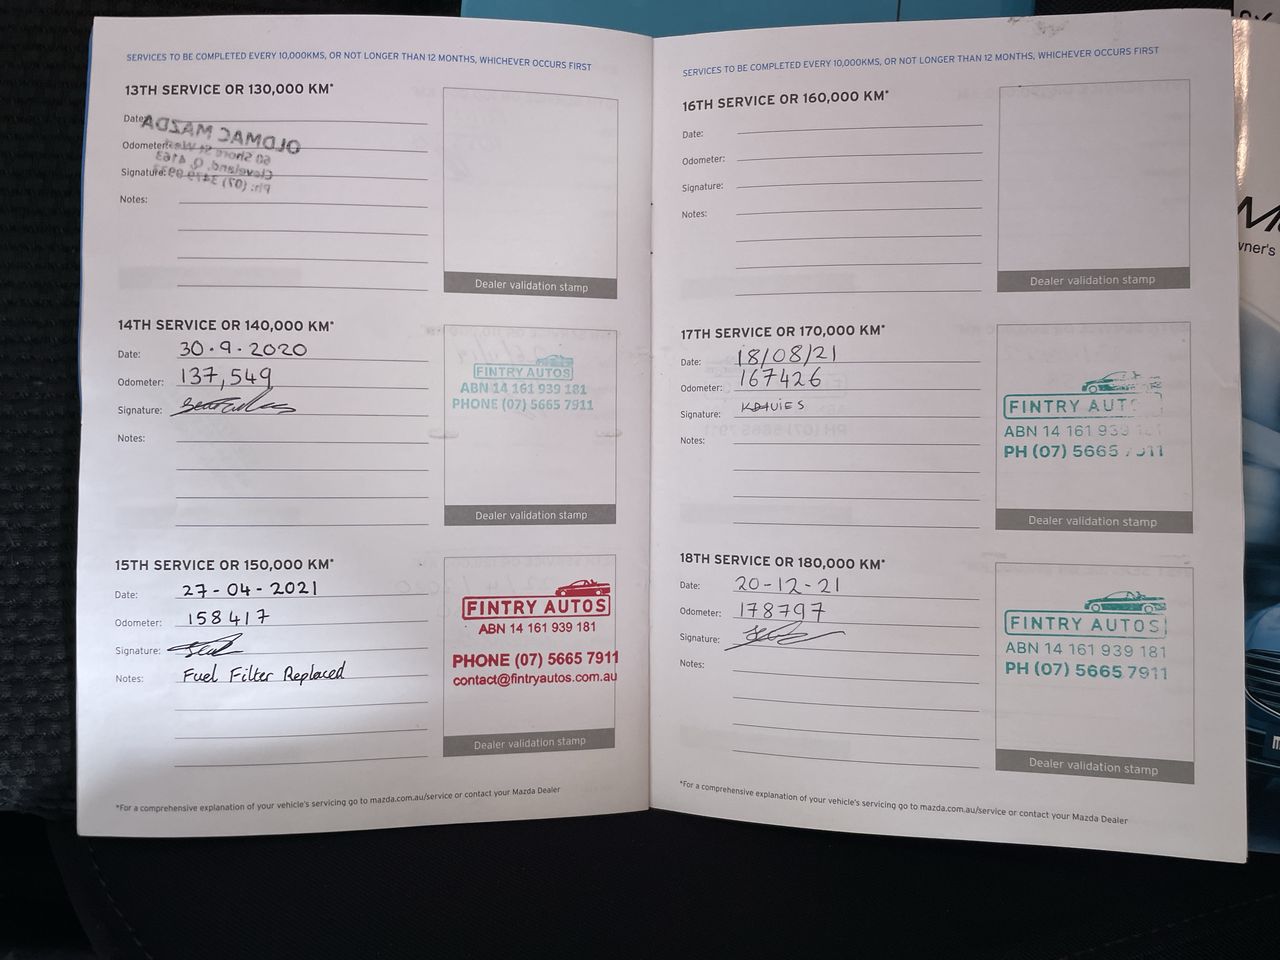 SERVICES TO BE COMPLETED EVERY 10,000KMS, OR NOT LONGER THAN 12 MONTHS, WHICHEVER OCCURS FIRST
13TH SERVICE OR 130,000 KM*
Date:
Odometer:
Signature:
Notes:
OLDMAC MAZDA
Cleveland, Q. 4163
Dealer validation stamp
14TH SERVICE OR 140,000 KM*
Date: 30·9·2020
Odometer: 137,549
Signature:
Notes:
FINTRY AUTOS
ABN 14 161 939 181
PHONE (07) 5665 7911
Dealer validation stamp
15TH SERVICE OR 150,000 KM*
Date: 27-04-2021
Odometer: 158417
Signature:
Notes: Fuel Filter Replaced
FINTRY AUTOS
ABN 14 161 939 181
PHONE (07) 5665 7911
contact@fintryautos.com.au
Dealer validation stamp
*For a comprehensive explanation of your vehicle's servicing go to mazda.com.au/service or contact your Mazda Dealer
SERVICES TO BE COMPLETED EVERY 10,000KMS, OR NOT LONGER THAN 12 MONTHS, WHICHEVER OCCURS FIRST
16TH SERVICE OR 160,000 KM*
Date:
Odometer:
Signature:
Notes:
Dealer validation stamp
17TH SERVICE OR 170,000 KM*
Date: 18/08/21
Odometer: 167426
Signature: K DAVIES
Notes:
FINTRY AUT
ABN 14 161 939 181
PH (07) 5665 7911
Dealer validation stamp
18TH SERVICE OR 180,000 KM*
Date: 20-12-21
Odometer: 178797
Signature:
Notes:
FINTRY AUTOS
ABN 14 161 939 181
PH (07) 5665 7911
Dealer validation stamp
*For a comprehensive explanation of your vehicle's servicing go to mazda.com.au/service or contact your Mazda Dealer